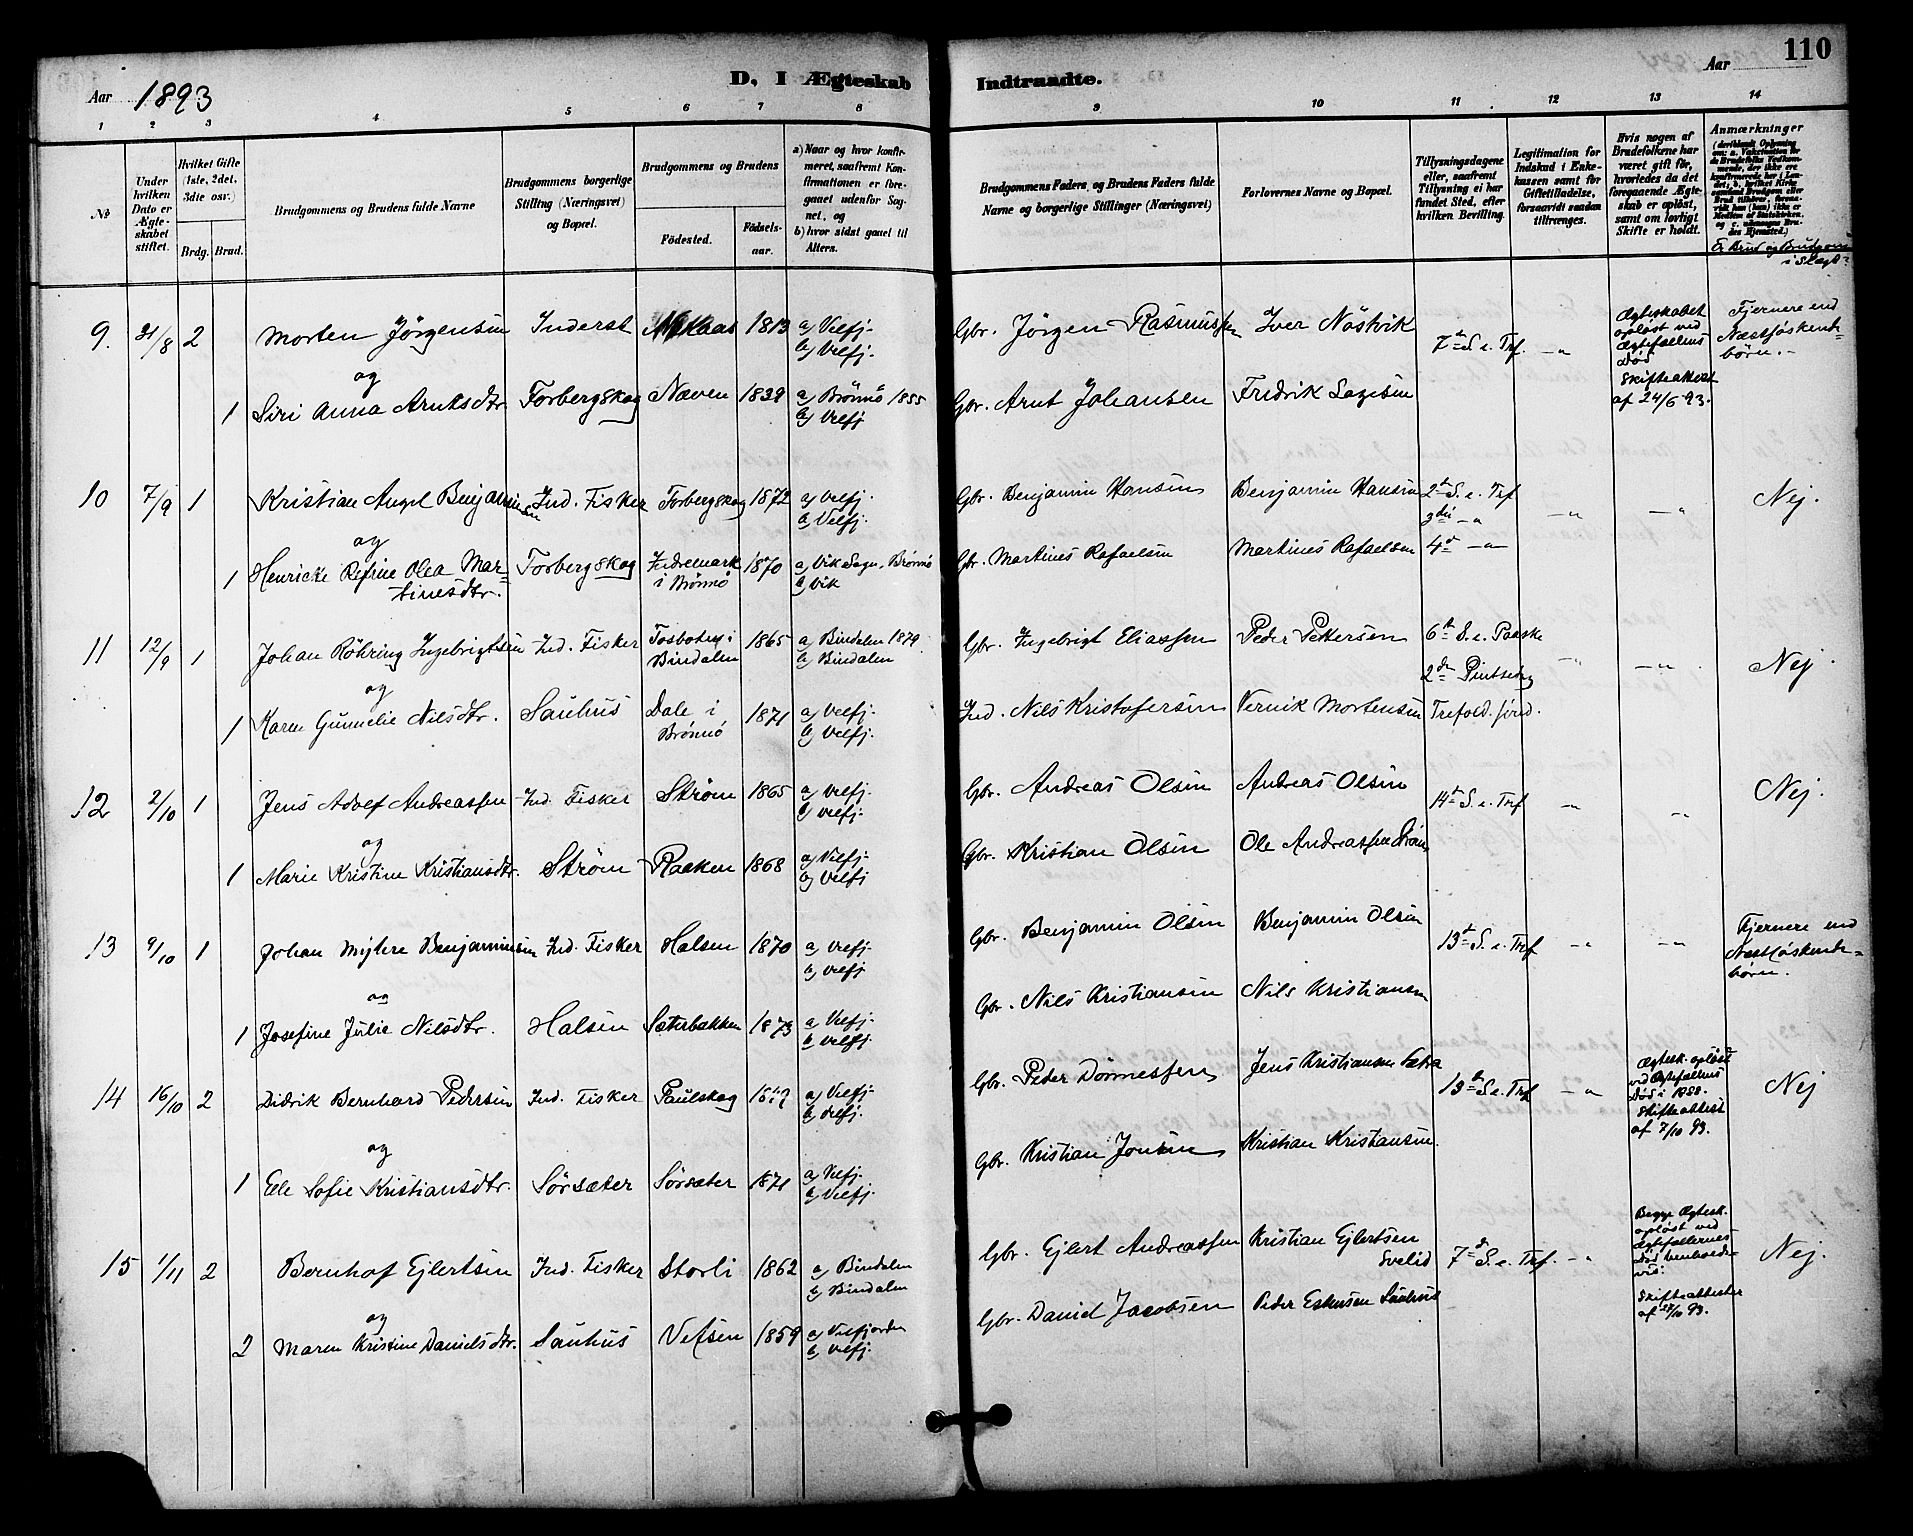 110
D, I Ægteskab Indtraadte.
Aar 1893
Aar
1 2 3 4 5 6 7 8 9 10 11 12 13 14
№
Under hvilken Dato er Ægteskabet stiftet.
Hvilket Gifte (1ste, 2det, 3die osv.)
Brdg. Brud.
Brudgommens og Brudens fulde Navne
Brudgommens borgerlige Stilling (Næringsvei) og Bopæl.
Brudgommens og Brudens
Fødested.
Fødselsaar.
a) Naar og hvor konfirmeret, saafremt Konfirmationen er foregaaet udenfor Sognet, og
b) hvor sidst gaaet til Alters.
Brudgommens Faders, og Brudens Faders fulde Navne og borgerlige Stillinger (Næringsvei)
Forlovernes Navne og Bopæl.
Tillysningsdagene eller, saafremt Tillysning ei har fundet Sted, efter hvilken Bevilling.
Legitimation for Indskud i Enkekassen samt for Giftetilladelse, forsaavidt saadan tiltrænges.
Hvis nogen af Brudefolkene har været gift før, hvorledes da det foregaaende Ægteskab er opløst, samt om lovligt Skifte er holdt.
Anmærkninger
Er Brud og Brudgom i Slægt?
9. 21/8 2 Morten Jörgensen Inderst 1813 a) Velfj. b) Velfj. Gbr. Jörgen Rasmussen Iver Nöstvik 7de S. e. Trf. -"- Ægteskabet opløst ved Ægtefællens Död Skifteattest af 24/6 93. Fjernere end Næstsöskendebörn.-
og
1 Siri Anna Arntsdtr. Torbergskog Næven 1839 a) Brönnö 1855 b) Velfj Gbr. Arnt Johansen Fredrik Sagesen
10 7/9 1 Kristian Angel Benjaminsen Ind. Fisker Torbergskog 1872 a) Velfj. b) Velfj. Gbr. Benjamin Hansen Benjamin Hansen 2d S. e. Trf 3die -"- 4d -"- -"- -"- Nej.
og
1 Henricke Refine Olea Martinesdtr. Torbergskog Indremark i Brönnö 1870 a) Vik Sogn, Brönnö b) Vik Gbr. Martines Rafaelsen Martines Rafaelsen
11 12/9 1 Johan Röhring Ingebrigtsen Ind. Fisker Tosbotn i Bindalen 1865 a) Bindalen 1879 b) Bindalen Gbr. Ingebrigt Eliassen Peder Pettersen 6t S. e. Paaske 2den Pintsedag Trefold. sönd. -"- -"- Nej.
og
1 Karen Gunnelie Nilsdtr. Sauhus Dale i Brönnö 1871 a) Velfj. b) Velfj. Ind. Nils Kristofersen Vernik Mortensen
12 2/10 1 Jens Adolf Andreassen Ind. Fisker Ström 1865 a) Velfj. b) Velfj. Gbr. Andreas Olsen Andreas Olsen 14d S. e. Trf -"- -"- Nej.
og
1 Marie Kristine Kristiansdtr. Ström Raaken 1868 a) Velfj. b) Velfj Gbr. Kristian Olsen Ole Andreassen Ström
13 9/10 1 Johan Myhre Benjaminsen Ind. Fisker Halsen 1870 a) Velfj. b) Velfj Gbr. Benjamin Olsen Benjamin Olsen 13d S. e. Trf -"- -"- Fjernere end Næstsöskendebörn.
og
1 Josefine Julie Nilsdtr. Halsen Sæterbakken 1873 a) Velfj. b) Velfj. Gbr. Nils Kristiansen Nils Kristiansen
14 16/10 2 Didrik Bernhard Pedersen Ind. Fisker Paulskog a) Velfj. b) Velfj. Gbr. Peder Dönnessen Jens Kristiansen 13d S. e. Trf -"- Ægtesk. opløst ved Ægtefællens Död i 1888. Skifteattest af 7/10 93. Nej
og
1 Ele Sofie Kristiansdtr. Sörsæter Sörsæter 1871 a) Velfj. b) Velfj. Gbr. Kristian Jonsen Kristian Kristiansen.
15 1/11 2 Bernhof Ejlertsen Ind. Fisker Storli 1862 a) Bindalen b) Bindalen Gbr. Ejlert Andreassen Kristian Ejlertsen Svelid 7d S. e. Trf. -"- Begge Ægtesk. opløst ved Ægtefællernes Död henholdsvis. Skifteattester af 27/10 93. Nej.
og
2 Maren Kristine Danielsdtr. Sauhus Vefsen 1859 a) Velfjorden b) Velfj. Gbr. Daniel Jacobsen Peder Eskesen Sauhus